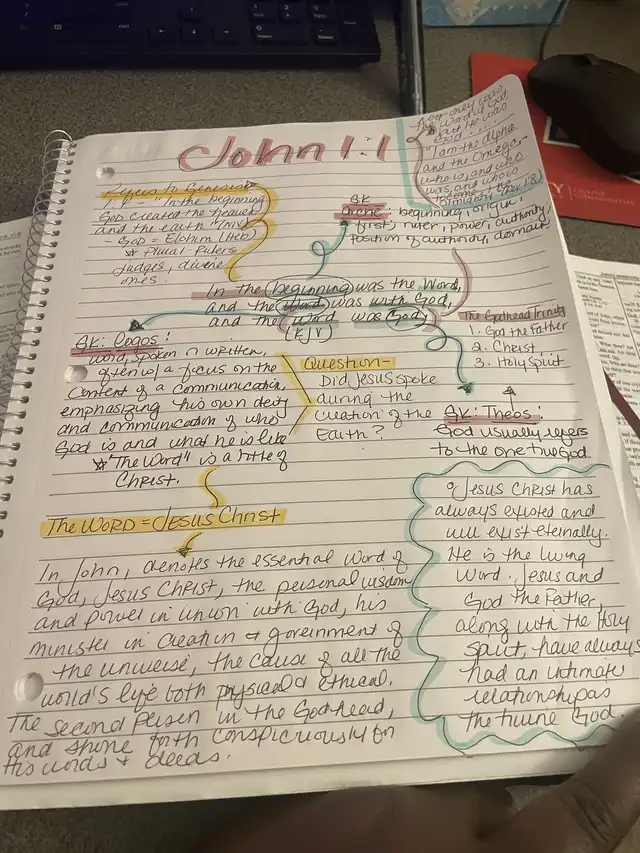 John 1:1
Refers to Genesis
1:1 - "In the beginning
God created the heavens
and the earth" (NIV)
- God = Elohim (Heb)
* Plural - Rulers
Judges, divine
ones.
GK
Arche: beginning, origin,
first, ruler, power, authority,
position of authority, domain
Not only was
the Word w/ God,
but He was
God
"I am the Alpha
and the Omega,-
who is, and who
was, and who is
(Rev 1:8)
In the beginning was the Word,
and the Word was with God,
and the Word was God,
(KJV)
GK: Logos:
word, spoken or written,
often w/ a focus on the
Content of a communication,
emphasizing his own deity
and communication of who
God is and what he is like
* "The Word" is a title of
Christ.
Question-
Did Jesus spoke
during the
creation of the
Earth?
The Godhead Trinity
1. God the Father
2. Christ
3. Holy Spirit
GK: Theos:
God usually refers
to the one true God.
The WORD = JESUS Christ
In John, denotes the essential Word of
God, Jesus Christ, the personal wisdom
and power in union with God, his
minister in creation + government of
the universe, the cause of all the
world's life both physical & ethical.
The second Person in the Godhead,
and shone forth conspicuously in
His words + deeds.
Jesus Christ has
always existed and
will exist eternally.
He is the living
Word. Jesus and
God the Father,
along with the Holy
Spirit, have always
had an intimate
relationship as
the triune God.